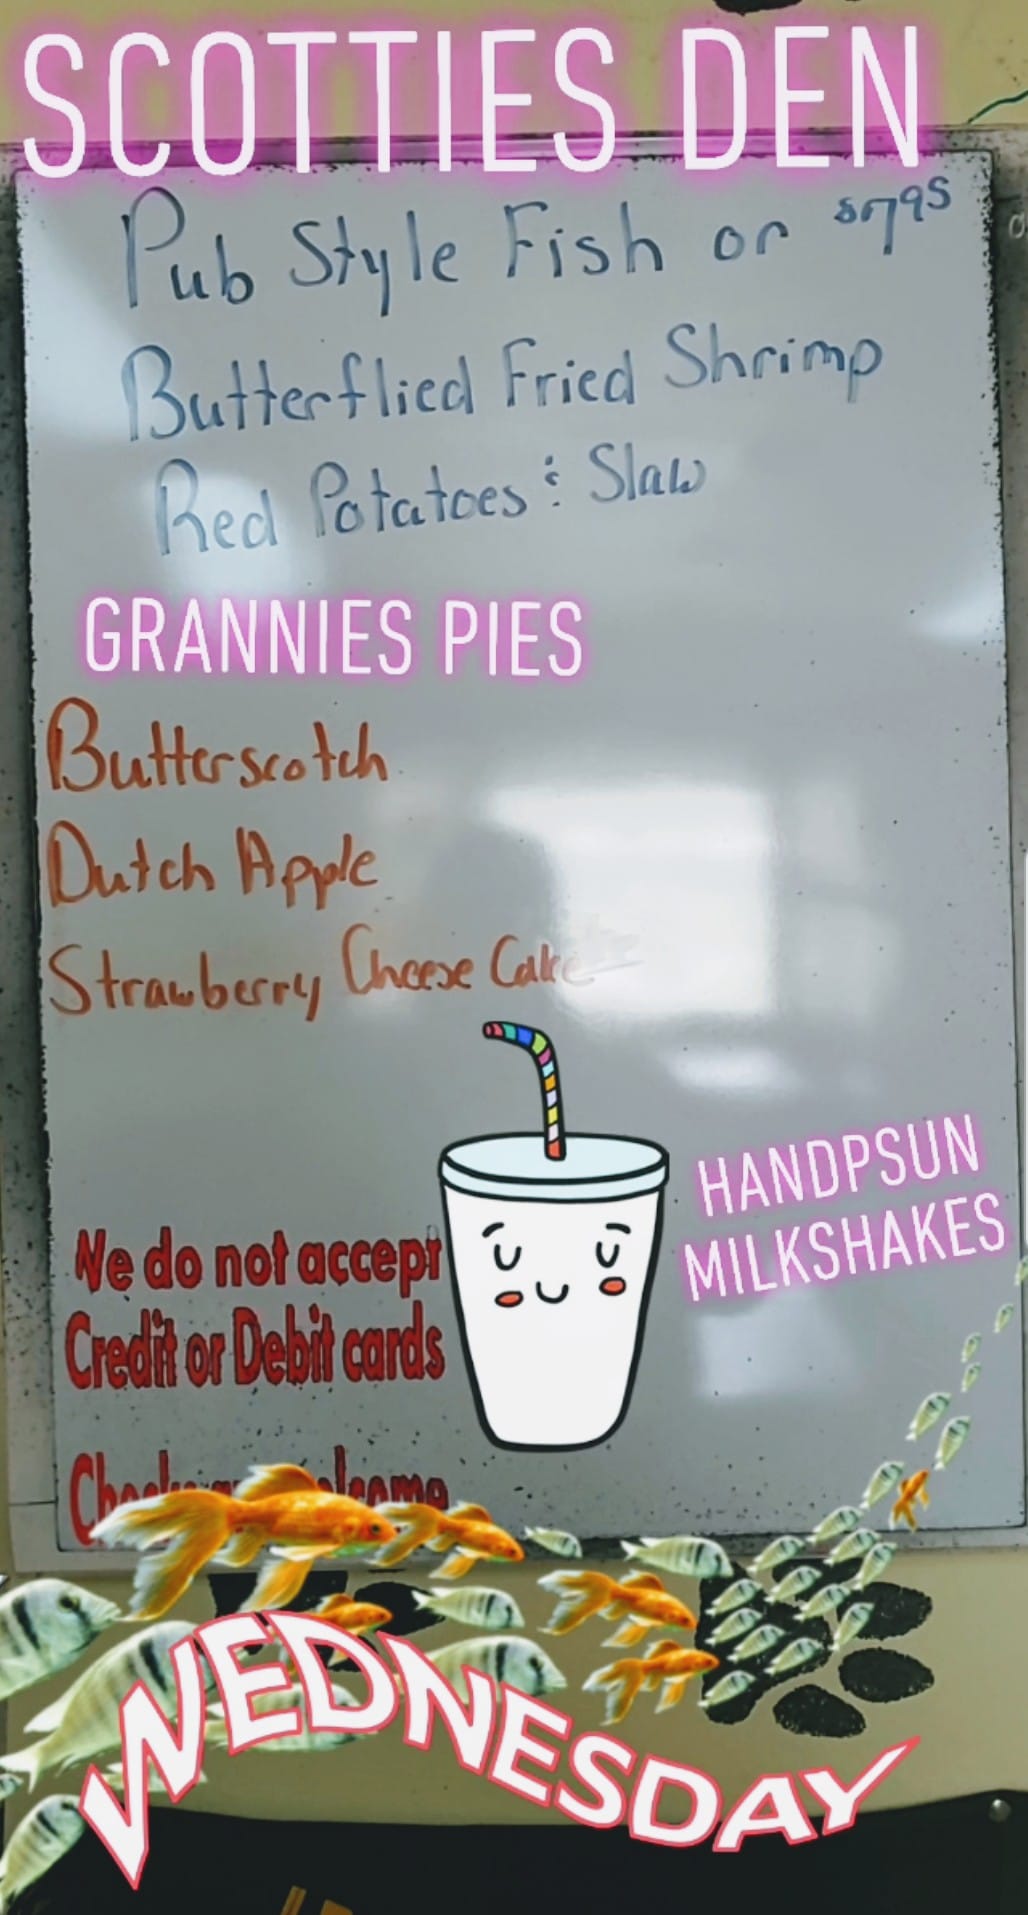 SCOTTIES DEN
Pub Style Fish or $7.95
Butterflied Fried Shrimp
Red Potatoes & Slaw
GRANNIES PIES
Butterscotch
Dutch Apple
Strawberry Cheese Cake
HANDPSUN
MILKSHAKES
We do not accept
Credit or Debit cards
WEDNESDAY